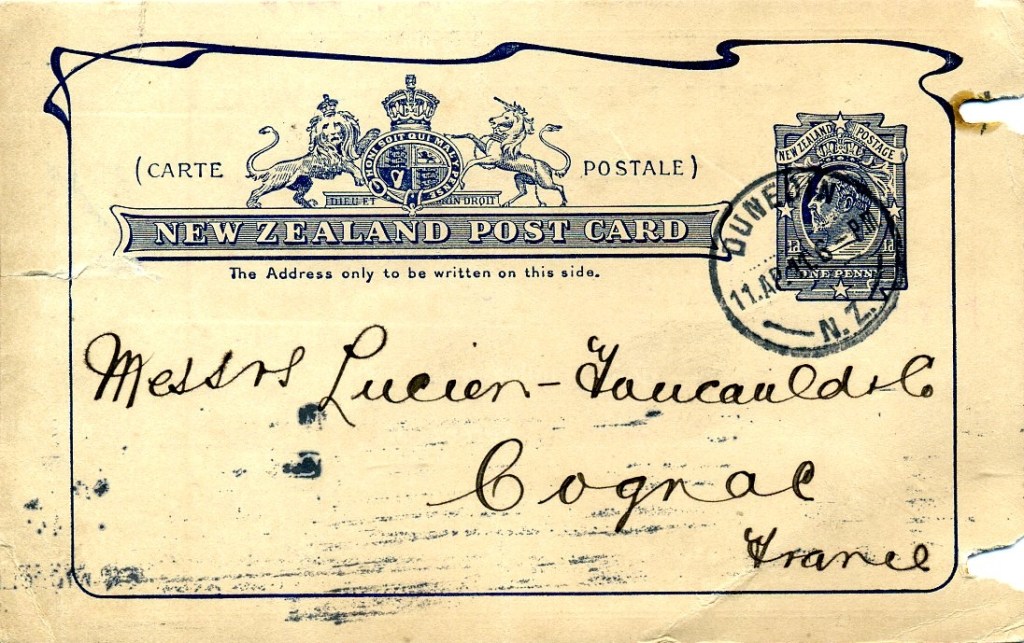 (CARTE POSTALE)
HONI SOIT QUI MAL Y PENSE
DIEU ET MON DROIT
NEW ZEALAND POST CARD
The Address only to be written on this side.
NEW ZEALAND POSTAGE
1d 1d
ONE PENNY
DUNEDIN
11.AP.11.6 - PM
N.Z.
Messrs Lucien-Foucauld & Co
Cognac
France